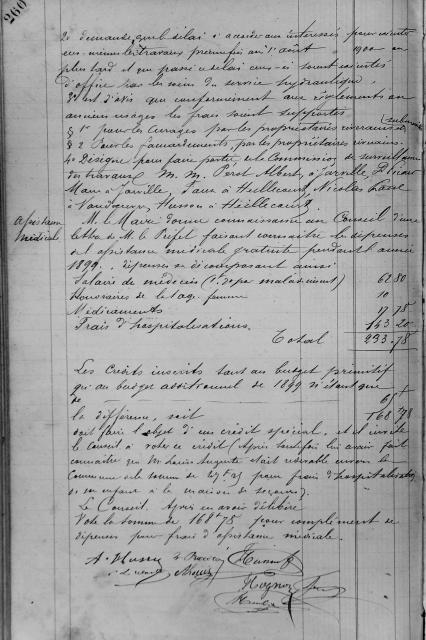 260
2o demande que le délai à accorder aux intéressés pour exécuter
eux-mêmes les travaux prenne fin au 1er août 1900 au
plus tard et que passé ce délai ceux-ci soient exécutés
d'office par les soins du service hydraulique
3o est d'avis que conformément aux règlements ou
anciens usages les frais soient supportés
§ 1er pour les curages par les propriétaires riverains
§ 2 Pour les faucardements, par les propriétaires riverains.
4o Désigne pour faire partie de la Commission de surveillance
des travaux M. M. Pérot Albert, à Jarville,
à Jarville, à Heillecourt, Nicolas
à Vandoeuvre, Husson à Heillecourt.
Assistance
médicale
M. le Maire donne connaissance au Conseil d'une
lettre de M. le Préfet faisant connaître les dépenses
de l'assistance médicale gratuite pendant l'année
1899. dépenses se décomposant ainsi
Salaire de médecin
62 80
Honoraires de la sage femme
10
Médicaments
17 78
Frais d'hospitalisations
143 20
Total
233.78
Les Crédits inscrits tant au budget primitif
qu'au budget additionnel de 1899 n'étant que
de 65f
la différence, soit 168f78
doit faire l'objet d'un crédit spécial, et il invite
le Conseil à voter ce crédit (Après toutefois lui avoir fait
connaître que Mr Auguste était redevable envers la
Commune de la somme de pour frais d'hospitalisation
de son enfant à la maison de secours).
Le Conseil, Après en avoir délibéré
Vote la somme de 168f75 pour complément de
dépenses pour frais d'assistance médicale.